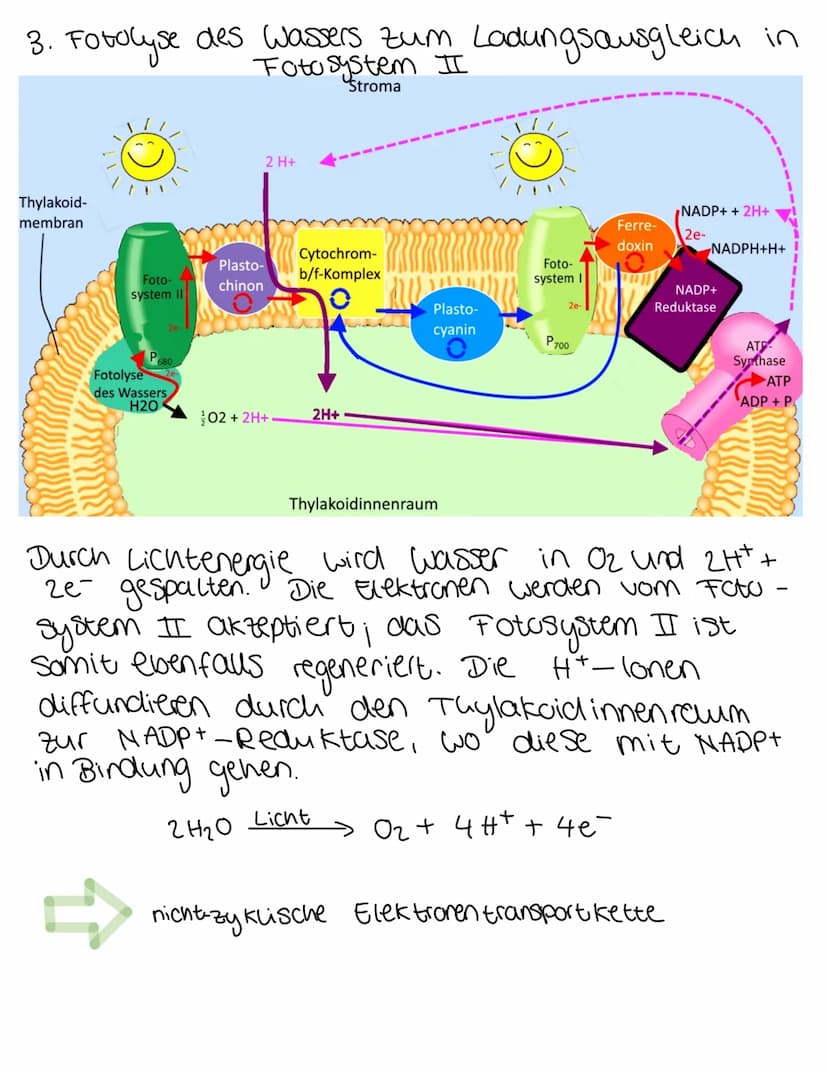 3. Fotolyse des Wassers zum Ladungsausgleich in
Fotosystem II
Stroma
2 H+
Thylakoid-
membran
NADP+ + 2H+
Ferre-
doxin
2e-
NADPH+H+
Cytochrom-
b/f-Komplex
Plasto-
chinon
Foto-
system II
Foto-
system I
NADP+
Reduktase
2e-
2e-
Plasto-
cyanin
P680
P700
ATP-
Synthase
Fotolyse
des Wassers
2e-
H2O
ATP
ADP + P
½O2 + 2H+
2H+
Thylakoidinnenraum
Durch Lichtenergie wird Wasser in O2 und 2H+ +
2e- gespalten. Die Elektronen werden vom Foto-
system II akzeptiert; das Fotosystem II ist
somit ebenfalls regeneriert. Die H+-Ionen
diffundieren durch den Thylakoidinnenraum
zur NADP+-Reduktase, wo diese mit NADP+
in Bindung gehen.
Licht
2H2O → O2 + 4H+ + 4e-
nicht-zyklische Elektronentransportkette